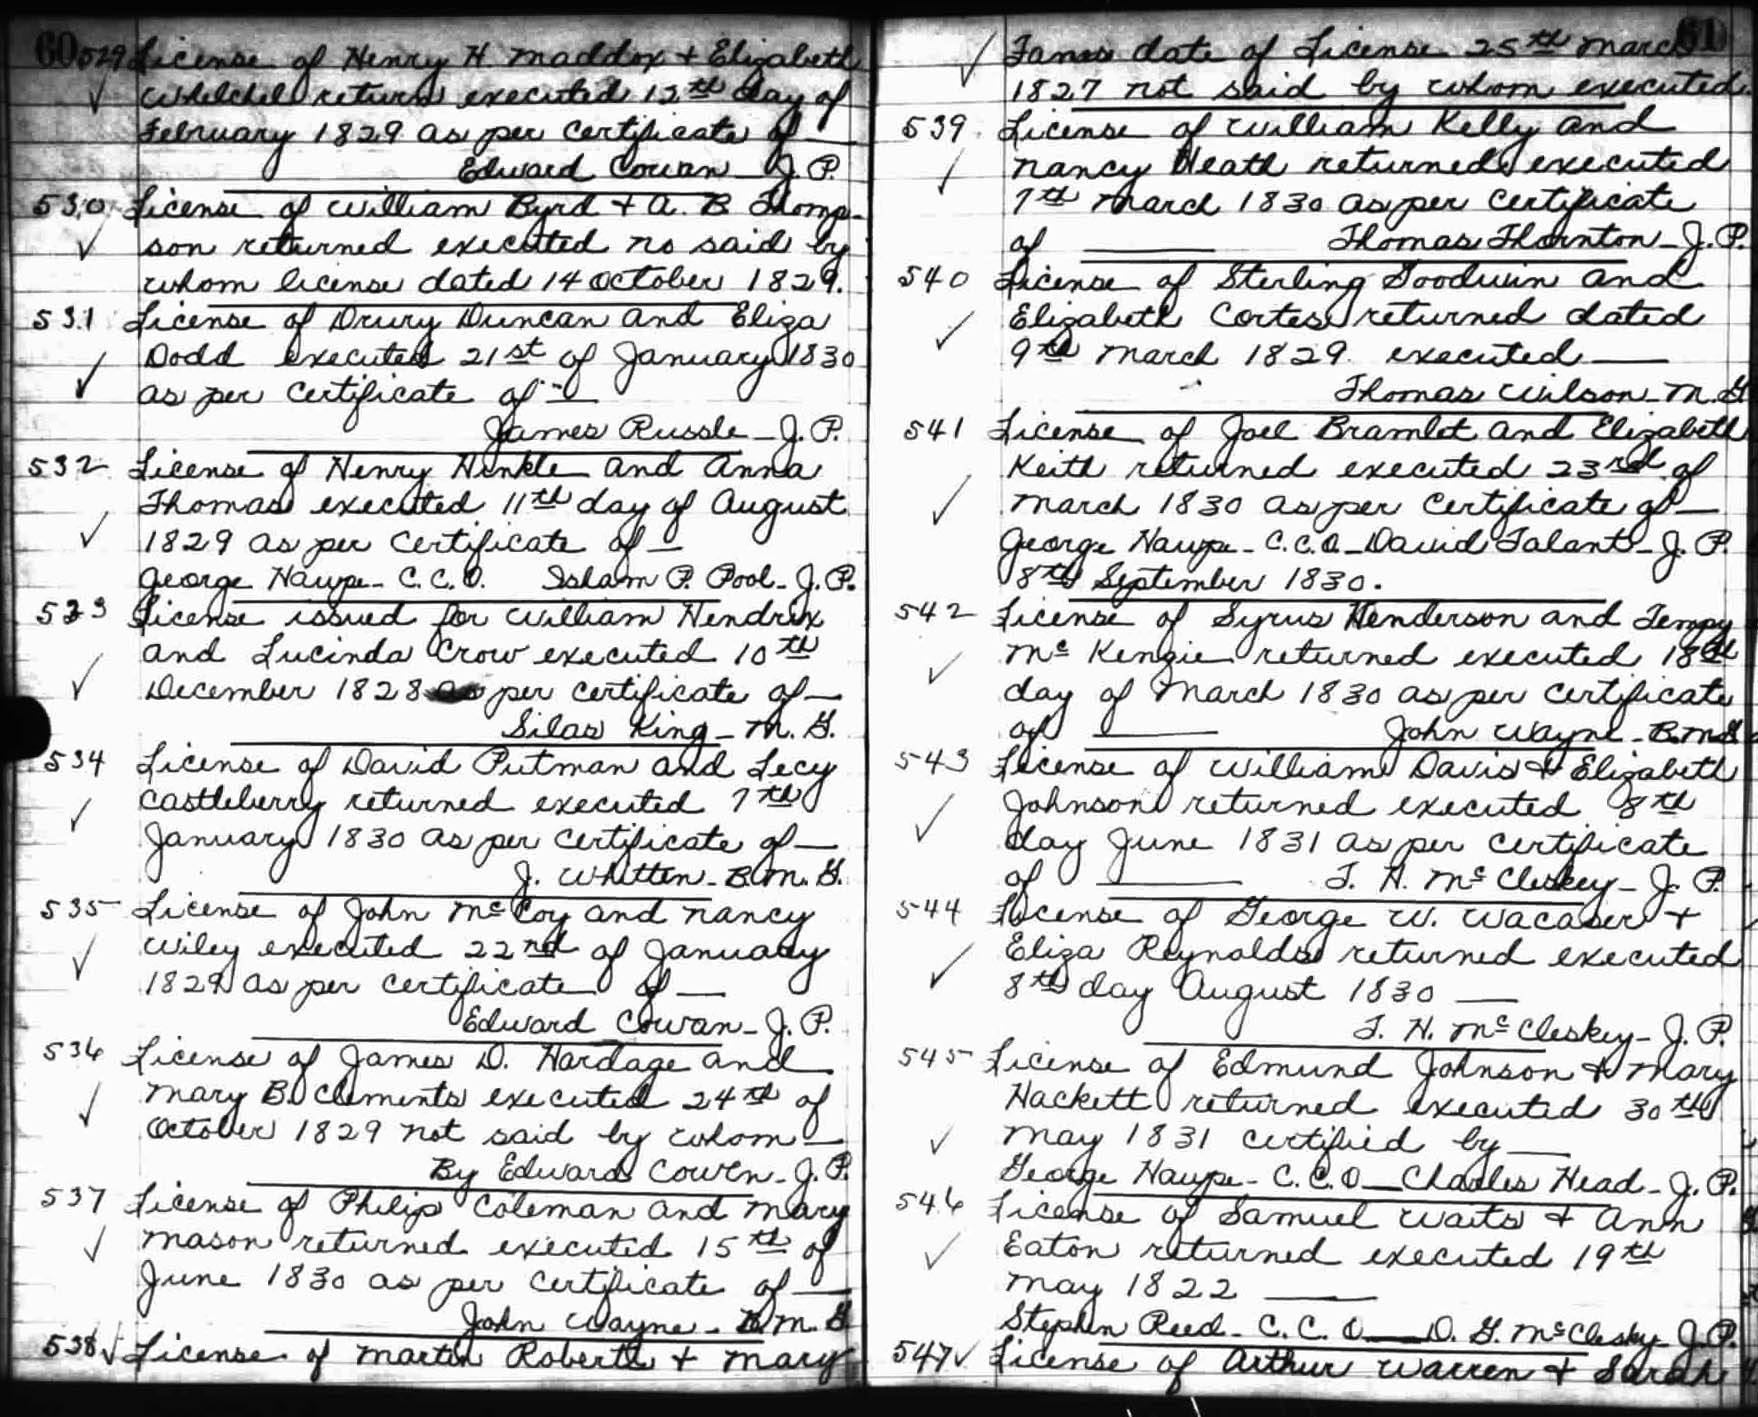 60
529 License of Henry H. Maddox + Elizabeth
Whelchel return executed 12th day of
February 1829 as per certificate of —
Edward Cowan - J. P.
530 License of William Byrd + A. B. Thomp-
son returned executed no said by
whom license dated 14 October 1829.
531 License of Drury Duncan and Eliza
Dodd executed 21st of January 1830
as per certificate of —
James Russle - J. P.
532 License of Henry Hinkle and Anna
Thomas executed 11th day of August
1829 as per certificate of —
George Hawpe - C. C. O. Isham P. Pool - J. P.
533 License issued for William Hendrix
and Lucinda Crow executed 10th
December 1828 as per certificate of —
Silas King - M. G.
534 License of David Putman and Lecy
Castleberry returned executed 7th
January 1830 as per certificate of —
J. Whitten - B. M. G.
535 License of John McCoy and Nancy
Wiley executed 22nd of January
1829 as per certificate of —
Edward Cowan - J. P.
536 License of James D. Hardage and
Mary B. Clements executed 24th of
October 1829 not said by whom —
By Edward Cowen - J. P.
537 License of Philip Coleman and Mary
Mason returned executed 15th of
June 1830 as per certificate of —
John Wayne - B. M. G
538 License of Martin Roberts + Mary
61
Tanes date of License 25th March
1827 not said by whom executed
539 License of William Kelly and
Nancy Heath returned executed
7th March 1830 as per certificate
of — Thomas Thornton - J. P.
540 License of Sterling Goodwin and
Elizabeth Cortes returned dated
9th March 1829 executed —
Thomas Wilson - M. G
541 License of Joel Bramlet and Elizabeth
Keith returned executed 23rd of
March 1830 as per certificate of —
George Hawpe - C. C. O. - David Talant - J. P.
8th September 1830.
542 License of Syrus Henderson and Tempy
McKenzie returned executed 18th
day of March 1830 as per certificate
of — John Wayne - B. M. G
543 License of William Davis + Elizabeth
Johnson returned executed 8th
day June 1831 as per certificate
of — T. H. McCleskey - J. P.
544 License of George W. Wacaser +
Eliza Reynolds returned executed
8th day August 1830 —
T. H. McCleskey - J. P.
545 License of Edmund Johnson + Mary
Hackett returned executed 30th
May 1831 certified by —
George Hawpe - C. C. O — Charles Head - J. P.
546 License of Samuel Waits + Ann
Eaton returned executed 19th
May 1822 —
Stephen Reed - C. C. O — D. G. McClesky J. P.
547 License of Arthur Warren + Sarah